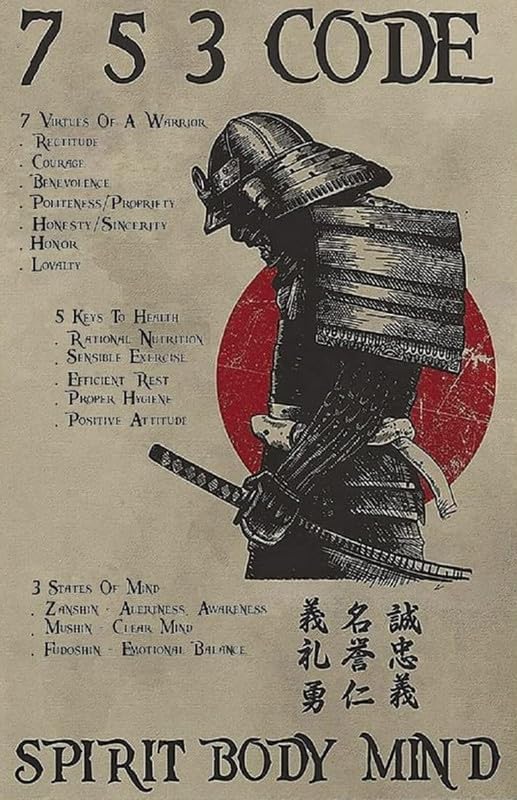 7 5 3 CODE
7 Virtues Of A Warrior
. Rectitude
. Courage
. Benevolence
. Politeness/Propriety
. Honesty/Sincerity
. Honor
. Loyalty
5 Keys To Health
. Rational Nutrition
. Sensible Exercise
. Efficient Rest
. Proper Hygiene
. Positive Attitude
3 States Of Mind
. Zanshin - Alertness, Awareness
. Mushin - Clear Mind
. Fudoshin - Emotional Balance
誠忠義
名誉仁
義礼勇
SPIRIT BODY MIND